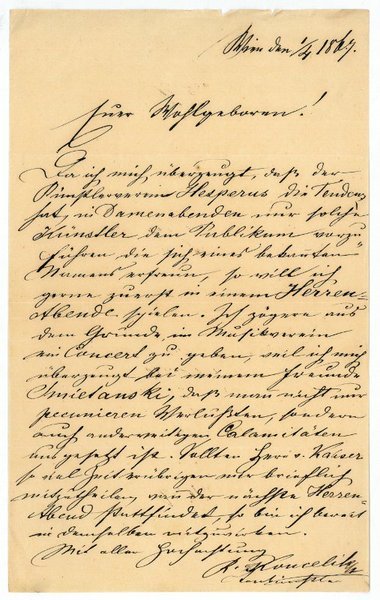 Wien den 1/4 1867.
Euer Wohlgeboren!
Da ich mich überzeugt, daß der
Künstlerverein Hesperus die Tendenz
hat, in Damenabenden nur solche
Künstler dem Publikum vorzu-
führen die sich eines bekannten
Namens erfreun, so will ich
gerne zuerst in einem Herren-
Abende spielen. Ich zögere aus
dem Grunde, im Musikverein
ein Concert zu geben, weil ich mich
überzeugt bei meinem Freunde
Smietanski, daß man nicht nur
pecunieren Verlusten, sondern
auch anderweitigen Calamitäten
ausgesetzt ist. Sollten Herr v. Kaiser
so viel Zeit erübrigen mir brieflich
mitzutheilen, wann der nächste Herren-
Abend stattfindet, so bin ich bereit
in demselben mitzuwirken.
Mit aller Hochachtung
Tonkünstler